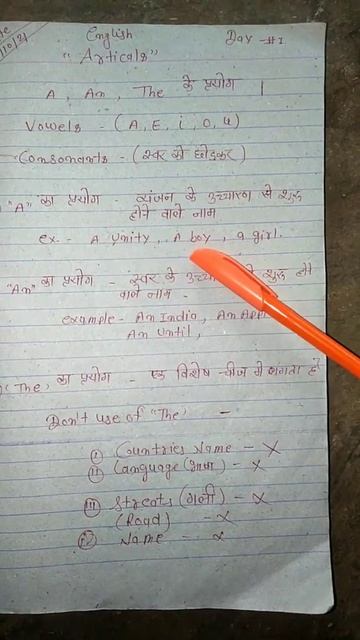 /10/21
English
Day - #1
"Articals"
A, An, The के प्रयोग |
Vowels - (A, E, i, O, u)
Consonants - (स्वर को छोड़कर)
"A" का प्रयोग - व्यंजन के उच्चारण से शुरू
होने वाले नाम
ex. - A Unity, A boy, a girl.
"An" का प्रयोग - स्वर के शुरू होने
वाले नाम -
example - An India, An
An Until,
"The" का प्रयोग - एक विशेष चीज में लगता है
Don't use of "The" -
(i) Countries Name - X
(ii) Language (भाषा) - X
(iii) Streets (गली) - X
(Road) - X
(iv) Name - X